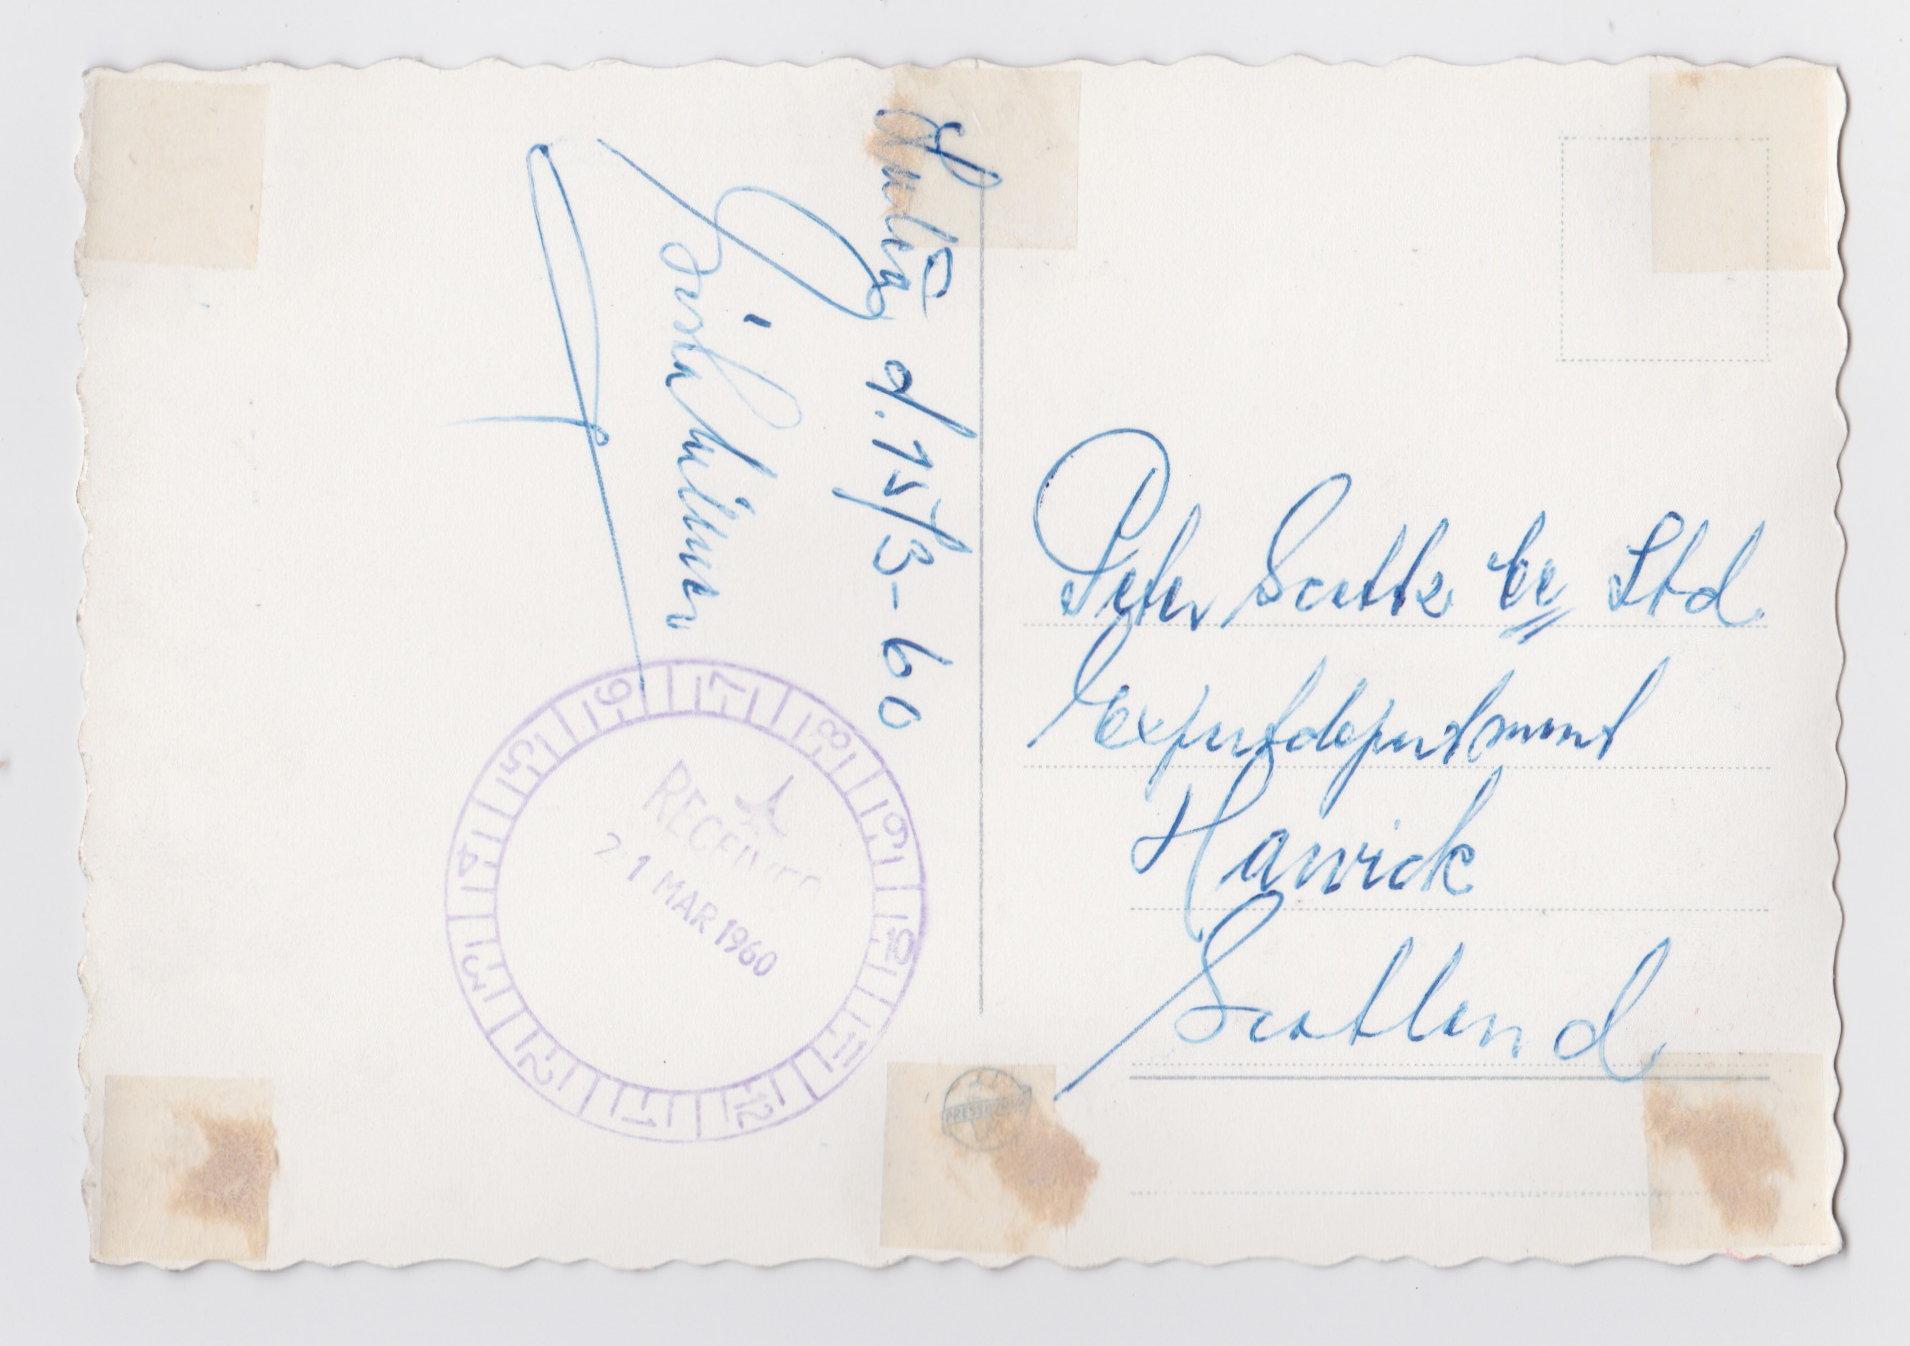 d. 15/3-60
Peter Scott & Co Ltd
Exportdepartment
Hawick
Scotland
RECEIVED
21 MAR 1960
1
2
3
4
5
6
7
8
9
10
11
12